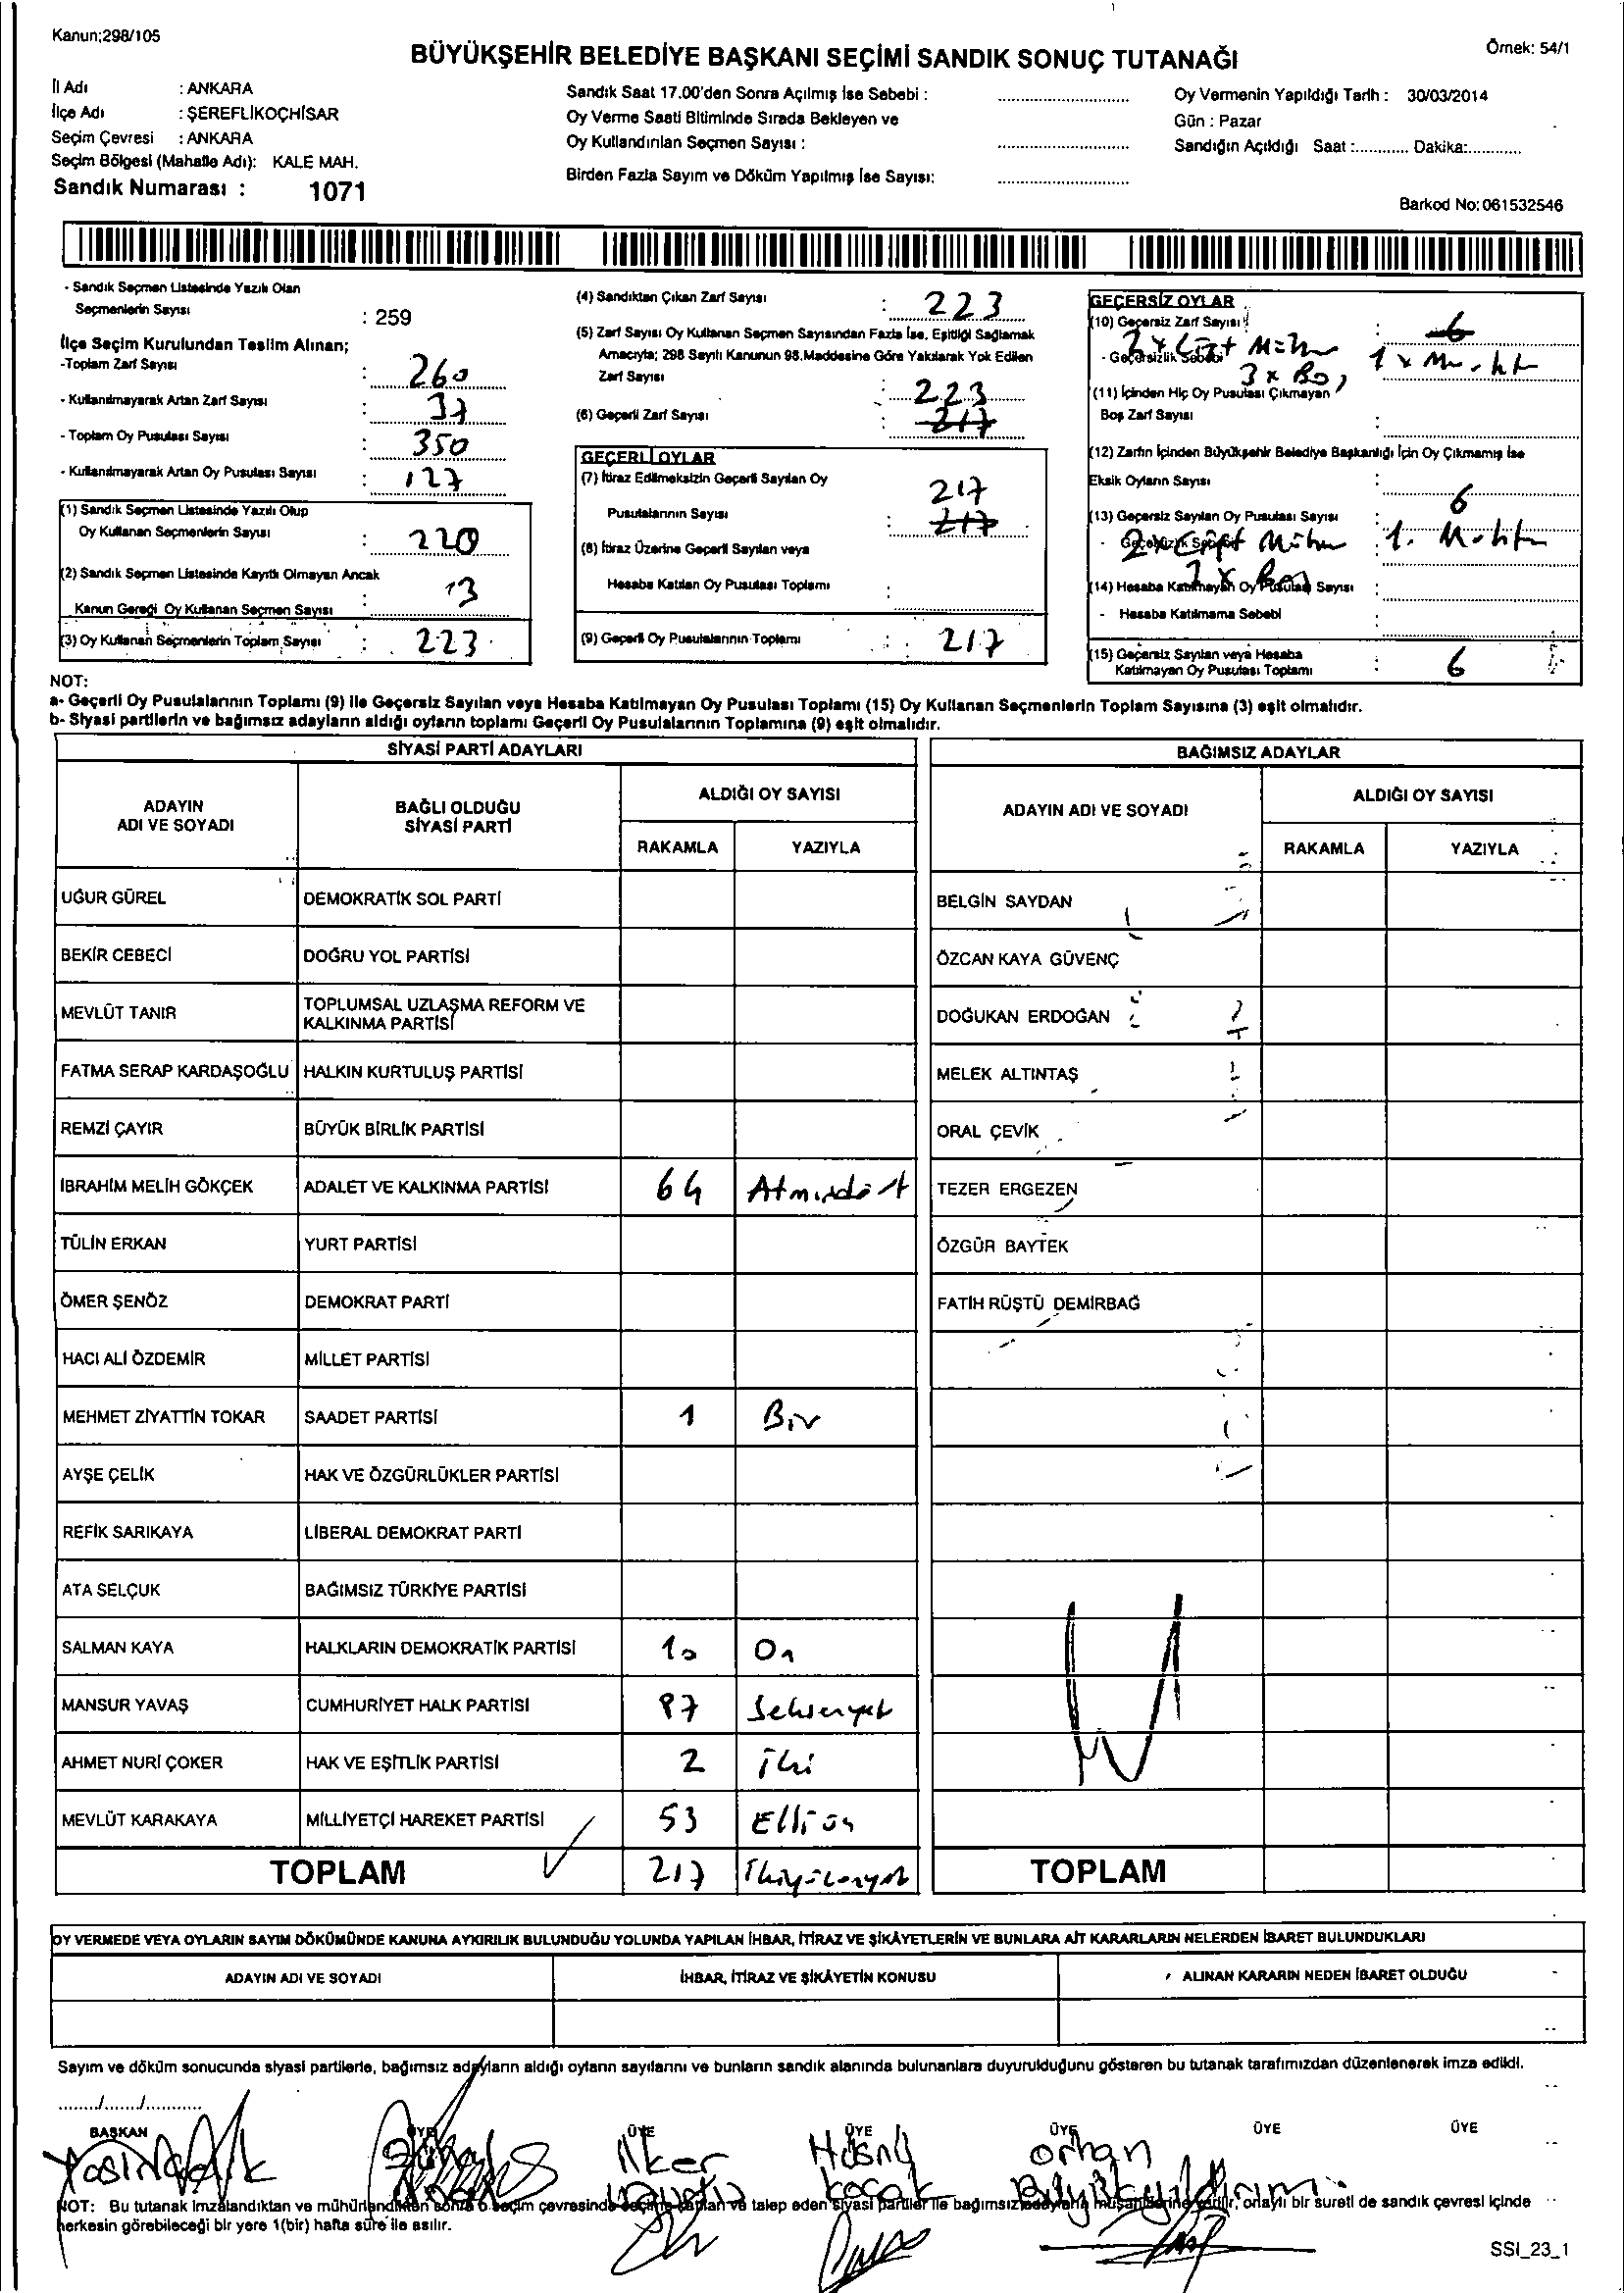 Kanun;298/105
BÜYÜKŞEHİR BELEDİYE BAŞKANI SEÇİMİ SANDIK SONUÇ TUTANAĞI
Örnek: 54/1
İl Adı : ANKARA
İlçe Adı : ŞEREFLİKOÇHİSAR
Seçim Çevresi : ANKARA
Seçim Bölgesi (Mahalle Adı): KALE MAH.
Sandık Numarası : 1071
Sandık Saat 17.00'den Sonra Açılmış İse Sebebi : ..............................
Oy Verme Saati Bitiminde Sırada Bekleyen ve
Oy Kullandırılan Seçmen Sayısı : ..............................
Birden Fazla Sayım ve Döküm Yapılmış İse Sayısı: ..............................
Oy Vermenin Yapıldığı Tarih : 30/03/2014
Gün : Pazar
Sandığın Açıldığı Saat :............ Dakika:............
Barkod No:061532546
- Sandık Seçmen Listesinde Yazılı Olan
Seçmenlerin Sayısı : 259
İlçe Seçim Kurulundan Teslim Alınan;
-Toplam Zarf Sayısı : 260
- Kullanılmayarak Artan Zarf Sayısı : 37
- Toplam Oy Pusulası Sayısı : 350
- Kullanılmayarak Artan Oy Pusulası Sayısı : 127
(1) Sandık Seçmen Listesinde Yazılı Olup
Oy Kullanan Seçmenlerin Sayısı : 220
(2) Sandık Seçmen Listesinde Kayıtlı Olmayan Ancak
Kanun Gereği Oy Kullanan Seçmen Sayısı : 3
(3) Oy Kullanan Seçmenlerin Toplam Sayısı : 223
(4) Sandıktan Çıkan Zarf Sayısı : 223
(5) Zarf Sayısı Oy Kullanan Seçmen Sayısından Fazla İse, Eşitliği Sağlamak
Amacıyla; 298 Sayılı Kanunun 98.Maddesine Göre Yakılarak Yok Edilen
Zarf Sayısı :
223
(6) Geçerli Zarf Sayısı : 217
GEÇERLİ OYLAR
(7) İtiraz Edilmeksizin Geçerli Sayılan Oy
217
Pusulalarının Sayısı : 217
(8) İtiraz Üzerine Geçerli Sayılan veya
Hesaba Katılan Oy Pusulası Toplamı :
(9) Geçerli Oy Pusulalarının Toplamı : 217
GEÇERSİZ OYLAR
(10) Geçersiz Zarf Sayısı : 6
- Geçersizlik Sebebi 2 x Çift Mühür
3 x Boş
(11) İçinden Hiç Oy Pusulası Çıkmayan
Boş Zarf Sayısı :
(12) Zarfın İçinden Büyükşehir Belediye Başkanlığı İçin Oy Çıkmamış İse
Eksik Oyların Sayısı :
(13) Geçersiz Sayılan Oy Pusulası Sayısı : 6
- Geçersizlik Sebebi 2 x Çift Mühür
(14) Hesaba Katılmayan Oy Pusulası Sayısı :
- Hesaba Katılmama Sebebi
(15) Geçersiz Sayılan veya Hesaba
Katılmayan Oy Pusulası Toplamı : 6
NOT:
a- Geçerli Oy Pusulalarının Toplamı (9) ile Geçersiz Sayılan veya Hesaba Katılmayan Oy Pusulası Toplamı (15) Oy Kullanan Seçmenlerin Toplam Sayısına (3) eşit olmalıdır.
b- Siyasi partilerin ve bağımsız adayların aldığı oyların toplamı Geçerli Oy Pusulalarının Toplamına (9) eşit olmalıdır.
SİYASİ PARTİ ADAYLARI
ADAYIN
ADI VE SOYADI
BAĞLI OLDUĞU
SİYASİ PARTİ
ALDIĞI OY SAYISI
RAKAMLA YAZIYLA
UĞUR GÜREL DEMOKRATİK SOL PARTİ
BEKİR CEBECİ DOĞRU YOL PARTİSİ
MEVLÜT TANIR TOPLUMSAL UZLAŞMA REFORM VE
KALKINMA PARTİSİ
FATMA SERAP KARDAŞOĞLU HALKIN KURTULUŞ PARTİSİ
REMZİ ÇAYIR BÜYÜK BİRLİK PARTİSİ
İBRAHİM MELİH GÖKÇEK ADALET VE KALKINMA PARTİSİ 64 Atmışdört
TÜLİN ERKAN YURT PARTİSİ
ÖMER ŞENÖZ DEMOKRAT PARTİ
HACI ALİ ÖZDEMİR MİLLET PARTİSİ
MEHMET ZİYATTİN TOKAR SAADET PARTİSİ 1 Bir
AYŞE ÇELİK HAK VE ÖZGÜRLÜKLER PARTİSİ
REFİK SARIKAYA LİBERAL DEMOKRAT PARTİ
ATA SELÇUK BAĞIMSIZ TÜRKİYE PARTİSİ
SALMAN KAYA HALKLARIN DEMOKRATİK PARTİSİ 10 On
MANSUR YAVAŞ CUMHURİYET HALK PARTİSİ 87 Seksenyedi
AHMET NURİ ÇOKER HAK VE EŞİTLİK PARTİSİ 2 İki
MEVLÜT KARAKAYA MİLLİYETÇİ HAREKET PARTİSİ 53 Elliüç
TOPLAM 217
BAĞIMSIZ ADAYLAR
ADAYIN ADI VE SOYADI
ALDIĞI OY SAYISI
RAKAMLA YAZIYLA
BELGİN SAYDAN
ÖZCAN KAYA GÜVENÇ
DOĞUKAN ERDOĞAN
MELEK ALTINTAŞ
ORAL ÇEVİK
TEZER ERGEZEN
ÖZGÜR BAYTEK
FATİH RÜŞTÜ DEMİRBAĞ
TOPLAM
OY VERMEDE VEYA OYLARIN SAYIM DÖKÜMÜNDE KANUNA AYKIRILIK BULUNDUĞU YOLUNDA YAPILAN İHBAR, İTİRAZ VE ŞİKÂYETLERİN VE BUNLARA AİT KARARLARIN NELERDEN İBARET BULUNDUKLARI
ADAYIN ADI VE SOYADI İHBAR, İTİRAZ VE ŞİKÂYETİN KONUSU ALINAN KARARIN NEDEN İBARET OLDUĞU
Sayım ve döküm sonucunda siyasi partilerle, bağımsız adayların aldığı oyların sayılarını ve bunların sandık alanında bulunanlara duyurulduğunu gösteren bu tutanak tarafımızdan düzenlenerek imza edildi.
......../......./...........
BAŞKAN ÜYE ÜYE ÜYE ÜYE ÜYE ÜYE
İlker Hüsnü Orhan
Koçak Büyükyıldırım
NOT: Bu tutanak imzalandıktan ve mühürlendikten sonra o seçim çevresinde seçime katılan ve talep eden siyasi partiler ile bağımsız adayların müşahitlerine verilir, onaylı bir sureti de sandık çevresi içinde
herkesin görebileceği bir yere 1(bir) hafta süre ile asılır.
SSI_23_1